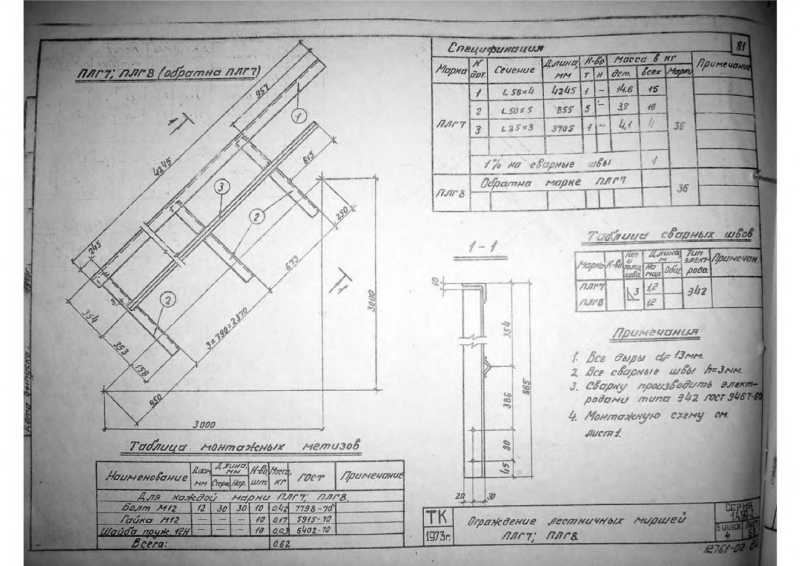 81
ПЛГ7; ПЛГ8 (обратна ПЛГ7)
957
1
1
4245
615
3
2
250
245
673
1
3000
2
3×790=2370
354
353
158
950
3000
Спецификация
Марка N дет. Сечение Длина, мм К-во Масса в кг Примечание
т н дет. всех Марки
ПЛГ7 1 L56×4 4245 1 – 14.6 15 36
2 L50×5 855 5 – 3.8 18
3 L25×3 3705 1 – 4,1 4
1% на сварные швы 1
ПЛГ8 Обратна марке ПЛГ7 36
1-1
10
354
386
865
80
45
20 30
Таблица сварных швов
Марка К-во Тип и толщ. шва Длина, м Тип элект-рода Примечан.
На мар. Общ.
ПЛГ7 3 1,2 Э42
ПЛГ8 1,2
Примечания
1. Все дыры d=13мм.
2. Все сварные швы h=3мм.
3. Сварку производить элект-
родами типа Э42 ГОСТ 9467-60
4. Монтажную схему см.
лист 1.
Таблица монтажных метизов
Наименование Диам. мм Длина, мм К-во шт. Масса, кг ГОСТ Примечание
Стерж. Нар.
Для каждой марки ПЛГ7; ПЛГ8
Болт М12 12 30 30 10 0.42 7798-70
Гайка М12 – – – 10 0.17 5915-70
Шайба пруж. 12Н – – – 10 0.03 6402-70
Всего: 0.62
ТК
1973г.
Ограждение лестничных маршей
ПЛГ7; ПЛГ8
Серия
Лист
4
12761-02